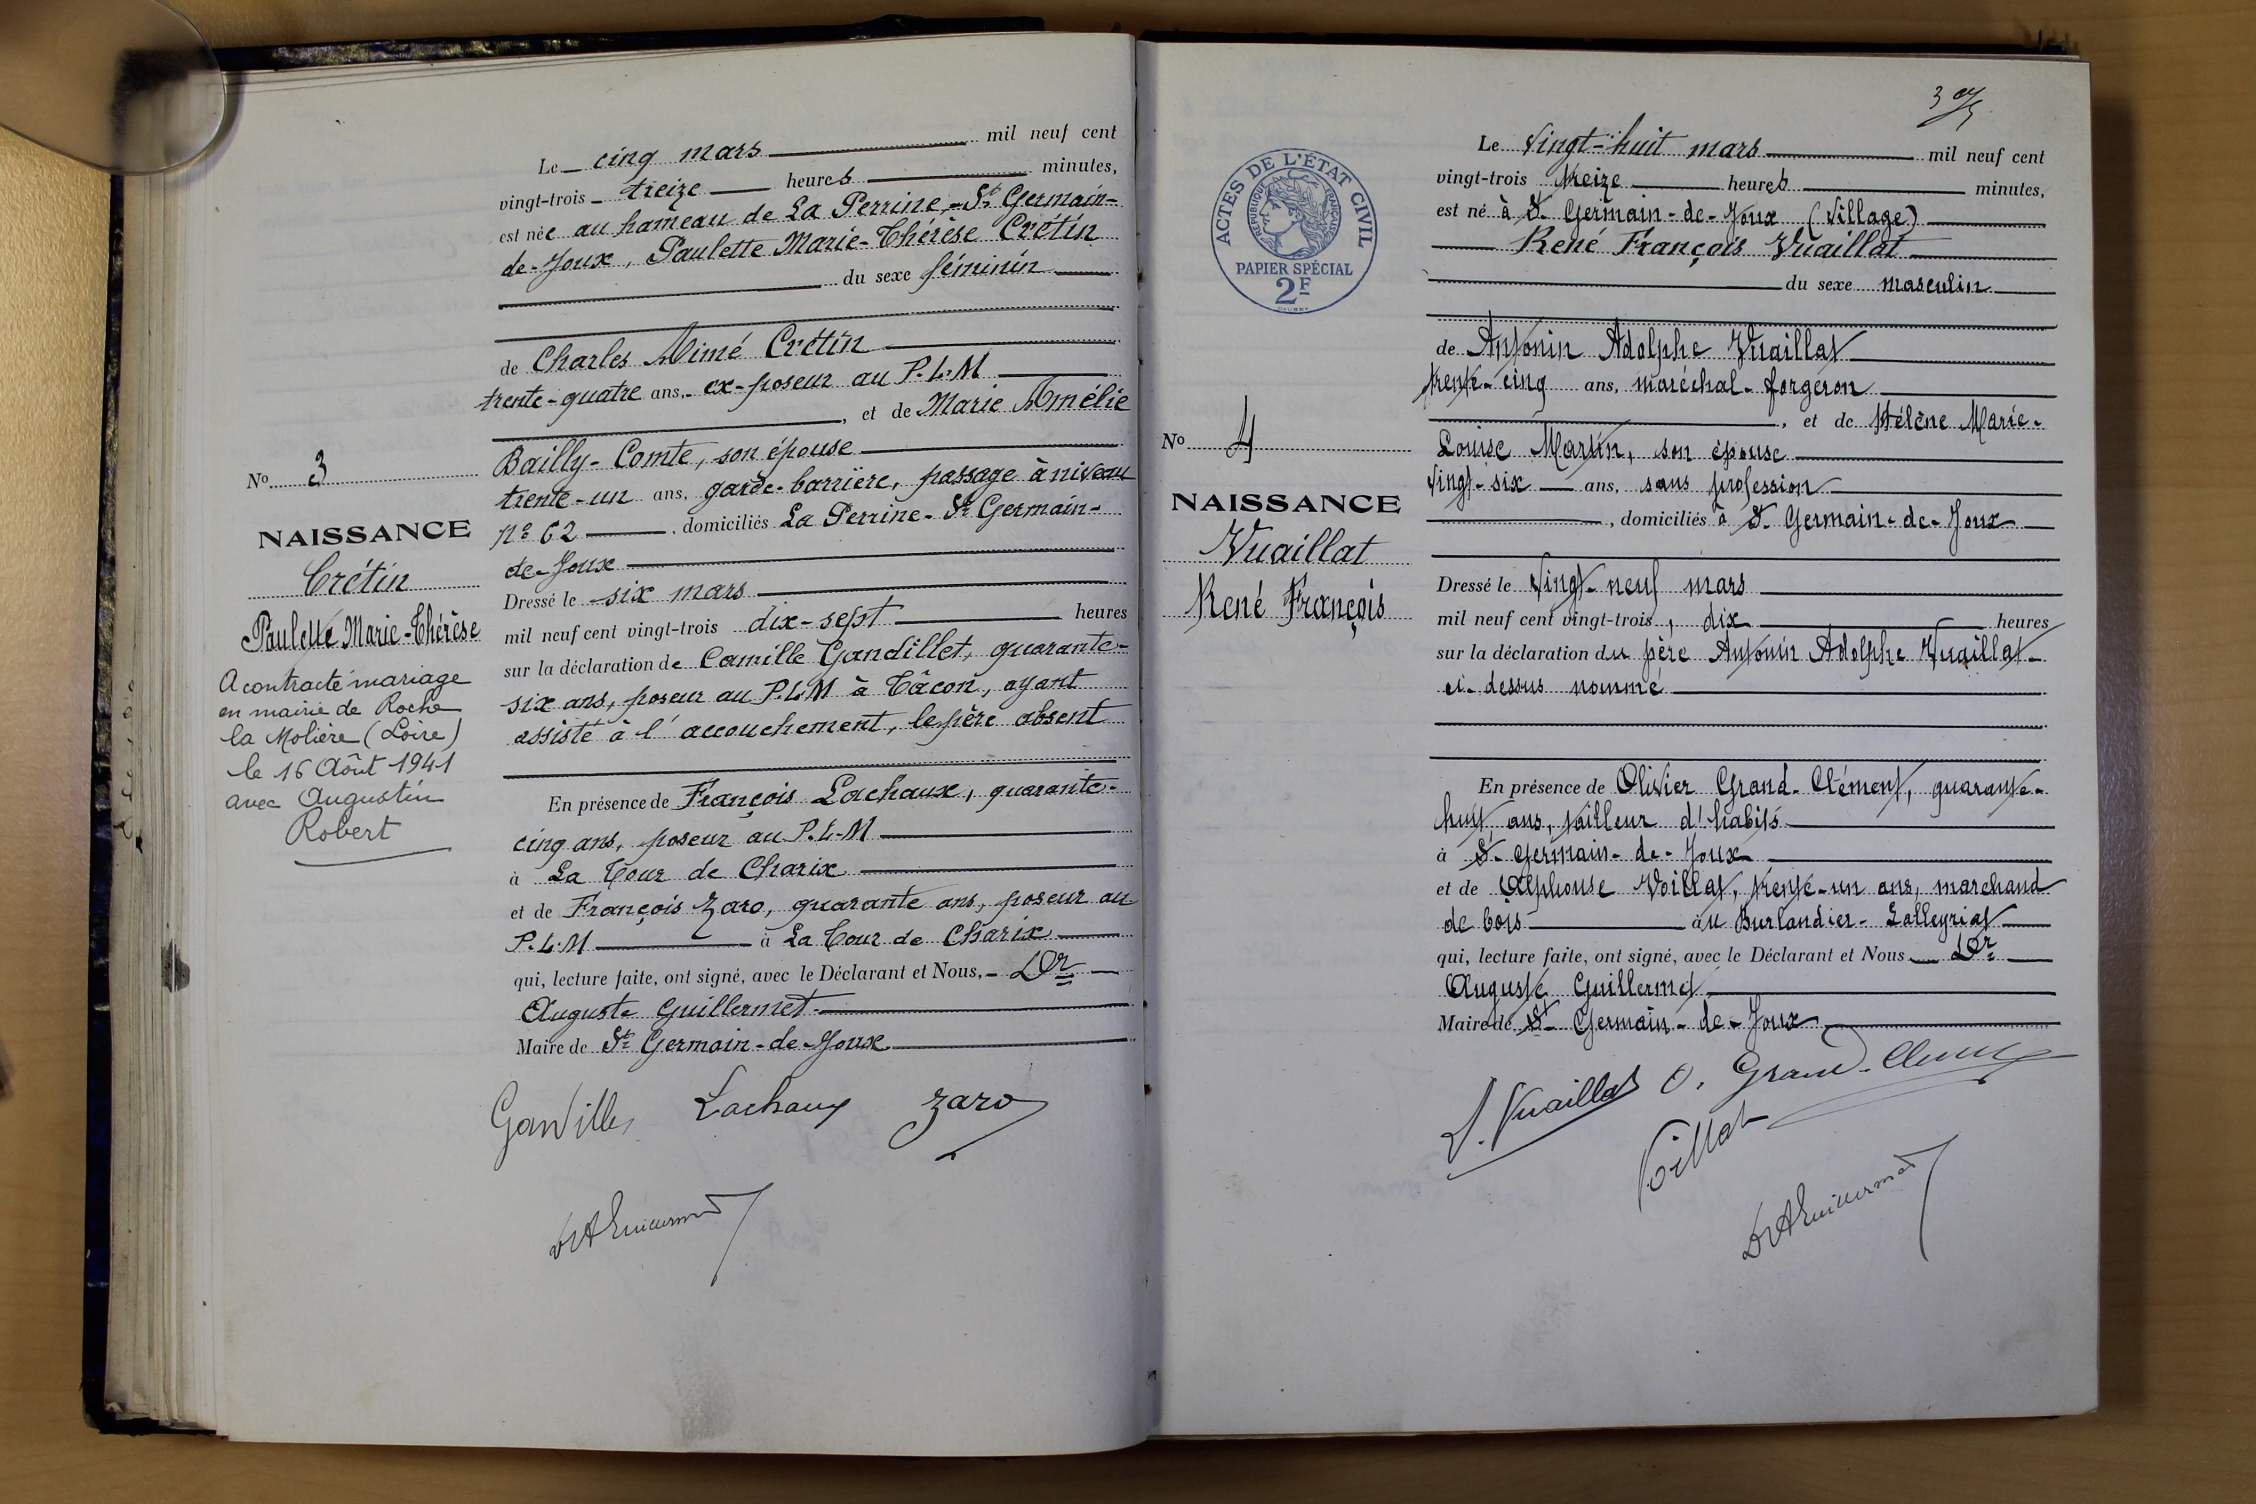 Le cinq mars mil neuf cent
vingt-trois treize heures minutes,
est née au hameau de La Perrine, St Germain-
de-Joux, Paulette Marie-Thérèse Crétin
du sexe féminin
de Charles Aimé Crétin
trente-quatre ans, ex-poseur au P.L.M
, et de Marie Amélie
Bailly-Comte, son épouse
trente-un ans, garde-barrière, passage à niveau
no 62 , domiciliés La Perrine-St Germain-
de-Joux
Dressé le six mars
mil neuf cent vingt-trois dix-sept heures
sur la déclaration de Camille Gandillet, quarante-
six ans, poseur au P.L.M à Tâcon, ayant
assisté à l'accouchement, le père absent
En présence de François Lachaux, quarante-
cinq ans, poseur au P.L.M
à La Cour de Charix
et de François Zaro, quarante ans, poseur au
P.L.M à La Cour de Charix
qui, lecture faite, ont signé, avec le Déclarant et Nous, Dr
Auguste Guillermet
Maire de St Germain-de-Joux
Lachaux Zaro
No 3
NAISSANCE
Crétin
Paulette Marie-Thérèse
A contracté mariage
en mairie de Roche
la Molière (Loire)
le 16 Août 1941
avec Augustin
Robert
3
Le vingt-huit mars mil neuf cent
vingt-trois treize heures minutes,
est né à St Germain-de-Joux (Village)
René François Vuaillat
du sexe masculin
de Antonin Adolphe Vuaillat
trente-cinq ans, maréchal-forgeron
, et de Hélène Marie-
Louise Martin, son épouse
vingt-six ans, sans profession
, domiciliés à St Germain-de-Joux
Dressé le vingt-neuf mars
mil neuf cent vingt-trois, dix heures
sur la déclaration du père Antonin Adolphe Vuaillat
ci-dessus nommé
En présence de Olivier Grand-Clément, quarante-
huit ans, tailleur d'habits
à St Germain-de-Joux
et de Alphonse Voillat, trente-un ans, marchand
de bois au Burlandier-Lalleyriat
qui, lecture faite, ont signé, avec le Déclarant et Nous Dr
Auguste Guillermet
Maire de St Germain-de-Joux
A. Vuaillat O. Grand-Clément
Voillat
ACTES DE L'ÉTAT CIVIL
RÉPUBLIQUE FRANÇAISE
PAPIER SPÉCIAL
2F
No 4
NAISSANCE
Vuaillat
René François